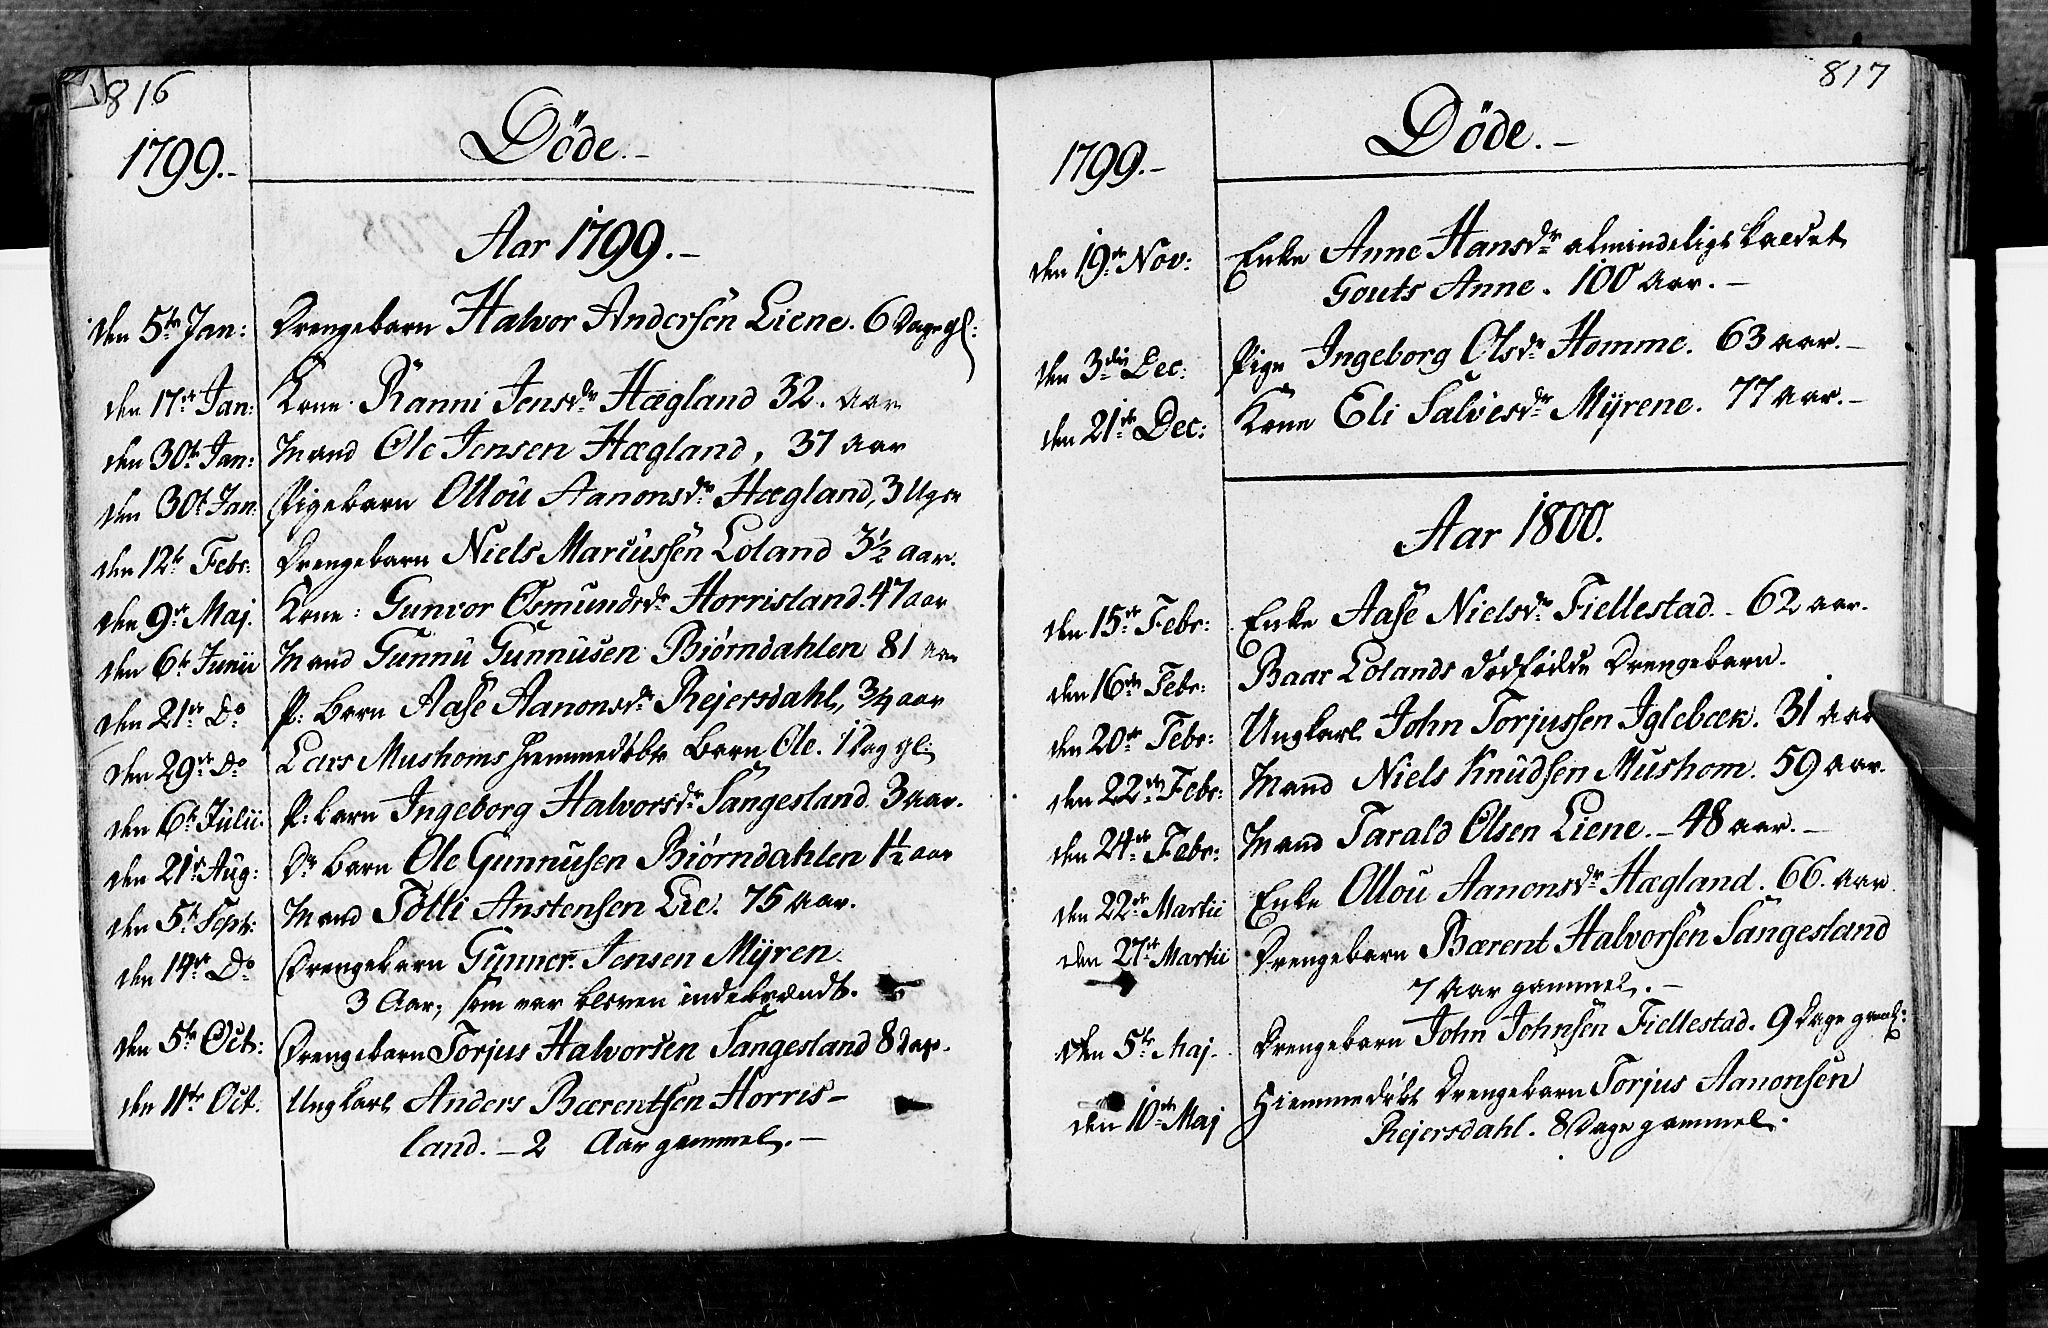 816
1799.-
Döde.-
Aar 1799.-
den 5te Jan: Drengebarn Halvor Andersen Liene. 6 Dage gl:
den 17de Jan: Kone Ranni Jensdr Hægland 32. Aar
den 30te Jan: Mand Ole Jensen Hægland, 37 Aar
den 30te Jan: Pigebarn Ollou Aanonsdr Hægland, 3 Uger
den 12te Febr: Drengebarn Niels Marcussen Loland 3½ aar.
den 9de Maj. Kone: Gunvor Osmundsdr Horrisland. 47 aar
den 6te Junii Mand Gunnu Gunnusen Biørndahlen 81 aar
den 21de Do P: Barn Aase Aanonsdr Rejersdahl, 3/4 aar
den 29de Do Lars Mushoms hiemmedøbte Barn Ole. 1 Dag gl:
den 6te Julii. P: barn Ingeborg Halvorsdr Sangesland. 3 aar.
den 21de Aug: Dr Barn Ole Gunnusen Biørndahlen 1½ aar
den 5te Sept: Mand Tolli Anstensen Lie. 75 Aar.
den 14de Do Drengebarn Gunner Jensen Myren
3 Aar, som var bleven indebrændt.
den 5te Oct: Drengebarn Torjus Halvorsen Sangesland 8 Dage.
den 11te Oct. Ungkarl Anders Bærentsen Horris-
land. - 2 Aar gammel. -
817
1799.-
Döde.-
den 19de Nov: Enke Anne Hansdr almindeligt kaldet
Gouts Anne. 100 Aar. -
den 3die Dec: Pige Ingeborg Olsdr Homme. 63 aar. -
den 21de Dec: Kone Eli Salvesdr Myrene. 77 Aar. -
Aar 1800.
den 15de Febr: Enke Aase Nielsdr Fiellestad. - 62 aar.
den 16de Febr: Baar Lolands dødfødde Drengebarn.
den 20de Febr: Ungkarl John Torjussen Iglebæk. 31 Aar
den 22de Febr: Mand Niels Knudsen Mushom. 59 Aar.
den 24de Febr: Mand Tarald Olsen Liene. - 48 aar. -
den 22de Martii Enke Ollou Aanonsdr Hægland. 66. Aar
den 27de Martii Drengebarn Bærent Halvorsen Sangesland
7 Aar gammel. -
den 5te Maj. Drengebarn John Johnsen Fiellestad. 9 Dage gml:
den 10de Maj Hiemmedøbt Drengebarn Torjus Aanonsen
Rejersdahl. 8 Dage gammel.